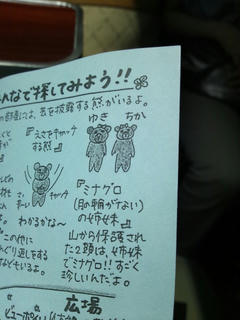 んなで探してみよう!!
には、芸を披露する熊がいるよ。
ゆき ちか
『えさをキャッチする熊』
キャッチ
『ミナグロ
(月の輪がない)
の姉妹』
山から保護され
た2頭は、姉妹
でミナグロ!!すごく
珍しいんだよ。
わかるかな~
この他に
ぐり返しする
などもいるよ。
広場